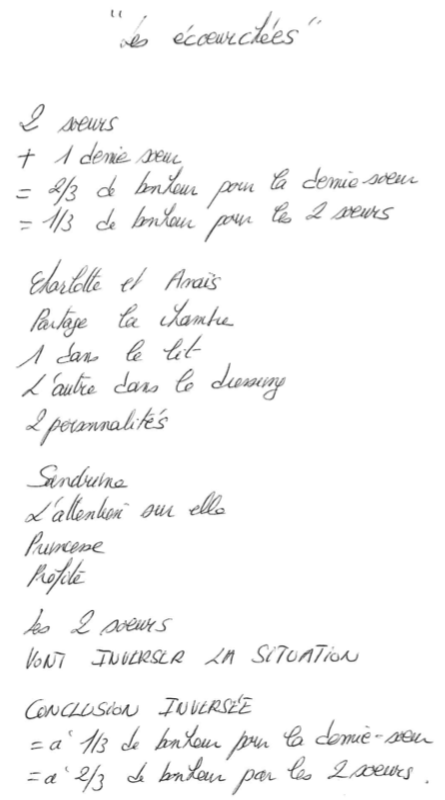 "Les écoeurchées"
2 soeurs
+ 1 demie soeur
= 2/3 de bonheur pour la demie-soeur
= 1/3 de bonheur pour les 2 soeurs
Charlotte et Anaïs
Partage la chambre
1 dans le lit
L'autre dans le dressing
2 personnalités
Sandrine
L'attention sur elle
Princesse
Profite
Les 2 soeurs
VONT INVERSER LA SITUATION
CONCLUSION INVERSÉE
= a' 1/3 de bonheur pour la demie-soeur
= a' 2/3 de bonheur par les 2 soeurs.